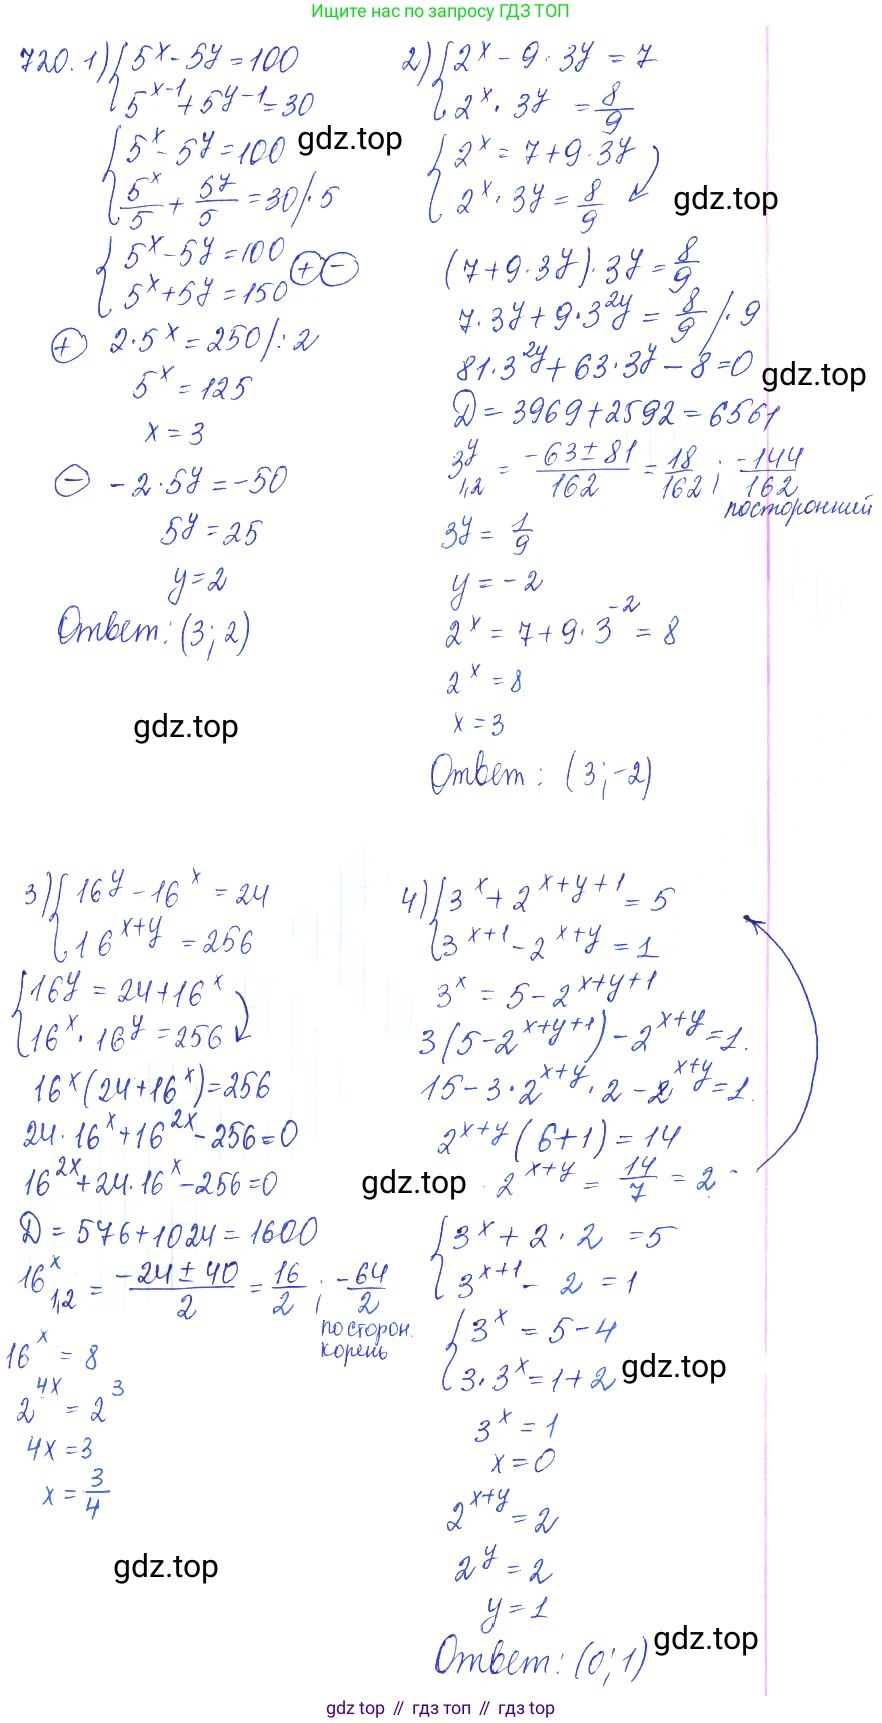 Ищите нас по запросу ГДЗ ТОП
720. 1) { 5^x - 5^y = 100
5^{x-1} + 5^{y-1} = 30
{ 5^x - 5^y = 100
gdz.top
5^x/5 + 5^y/5 = 30 /· 5
{ 5^x - 5^y = 100
5^x + 5^y = 150 (+) (-)
(+) 2·5^x = 250 /: 2
5^x = 125
x = 3
(-) -2·5^y = -50
5^y = 25
y = 2
Ответ: (3; 2)
gdz.top
2) { 2^x - 9·3^y = 7
2^x · 3^y = 8/9
{ 2^x = 7 + 9·3^y
2^x · 3^y = 8/9
gdz.top
(7 + 9·3^y)·3^y = 8/9
7·3^y + 9·3^{2y} = 8/9 /· 9
81·3^{2y} + 63·3^y - 8 = 0
gdz.top
D = 3969 + 2592 = 6561
3^y_{1,2} = (-63 ± 81)/162 = 18/162 ; -144/162
посторонний
3^y = 1/9
y = -2
2^x = 7 + 9·3^{-2} = 8
2^x = 8
x = 3
Ответ: (3; -2)
3) { 16^y - 16^x = 24
16^{x+y} = 256
{ 16^y = 24 + 16^x
16^x · 16^y = 256
16^x (24 + 16^x) = 256
24·16^x + 16^{2x} - 256 = 0
16^{2x} + 24·16^x - 256 = 0
gdz.top
D = 576 + 1024 = 1600
16^x_{1,2} = (-24 ± 40)/2 = 16/2 ; -64/2
посторон.
корень
16^x = 8
2^{4x} = 2^3
4x = 3
x = 3/4
gdz.top
4) { 3^x + 2^{x+y+1} = 5
3^{x+1} - 2^{x+y} = 1
3^x = 5 - 2^{x+y+1}
3(5 - 2^{x+y+1}) - 2^{x+y} = 1.
15 - 3·2^{x+y}·2 - 2^{x+y} = 1.
2^{x+y} (6+1) = 14
2^{x+y} = 14/7 = 2
{ 3^x + 2·2 = 5
3^{x+1} - 2 = 1
{ 3^x = 5 - 4
3·3^x = 1 + 2
gdz.top
3^x = 1
x = 0
2^{x+y} = 2
2^y = 2
y = 1
Ответ: (0; 1)
gdz.top
gdz top // гдз топ // gdz top